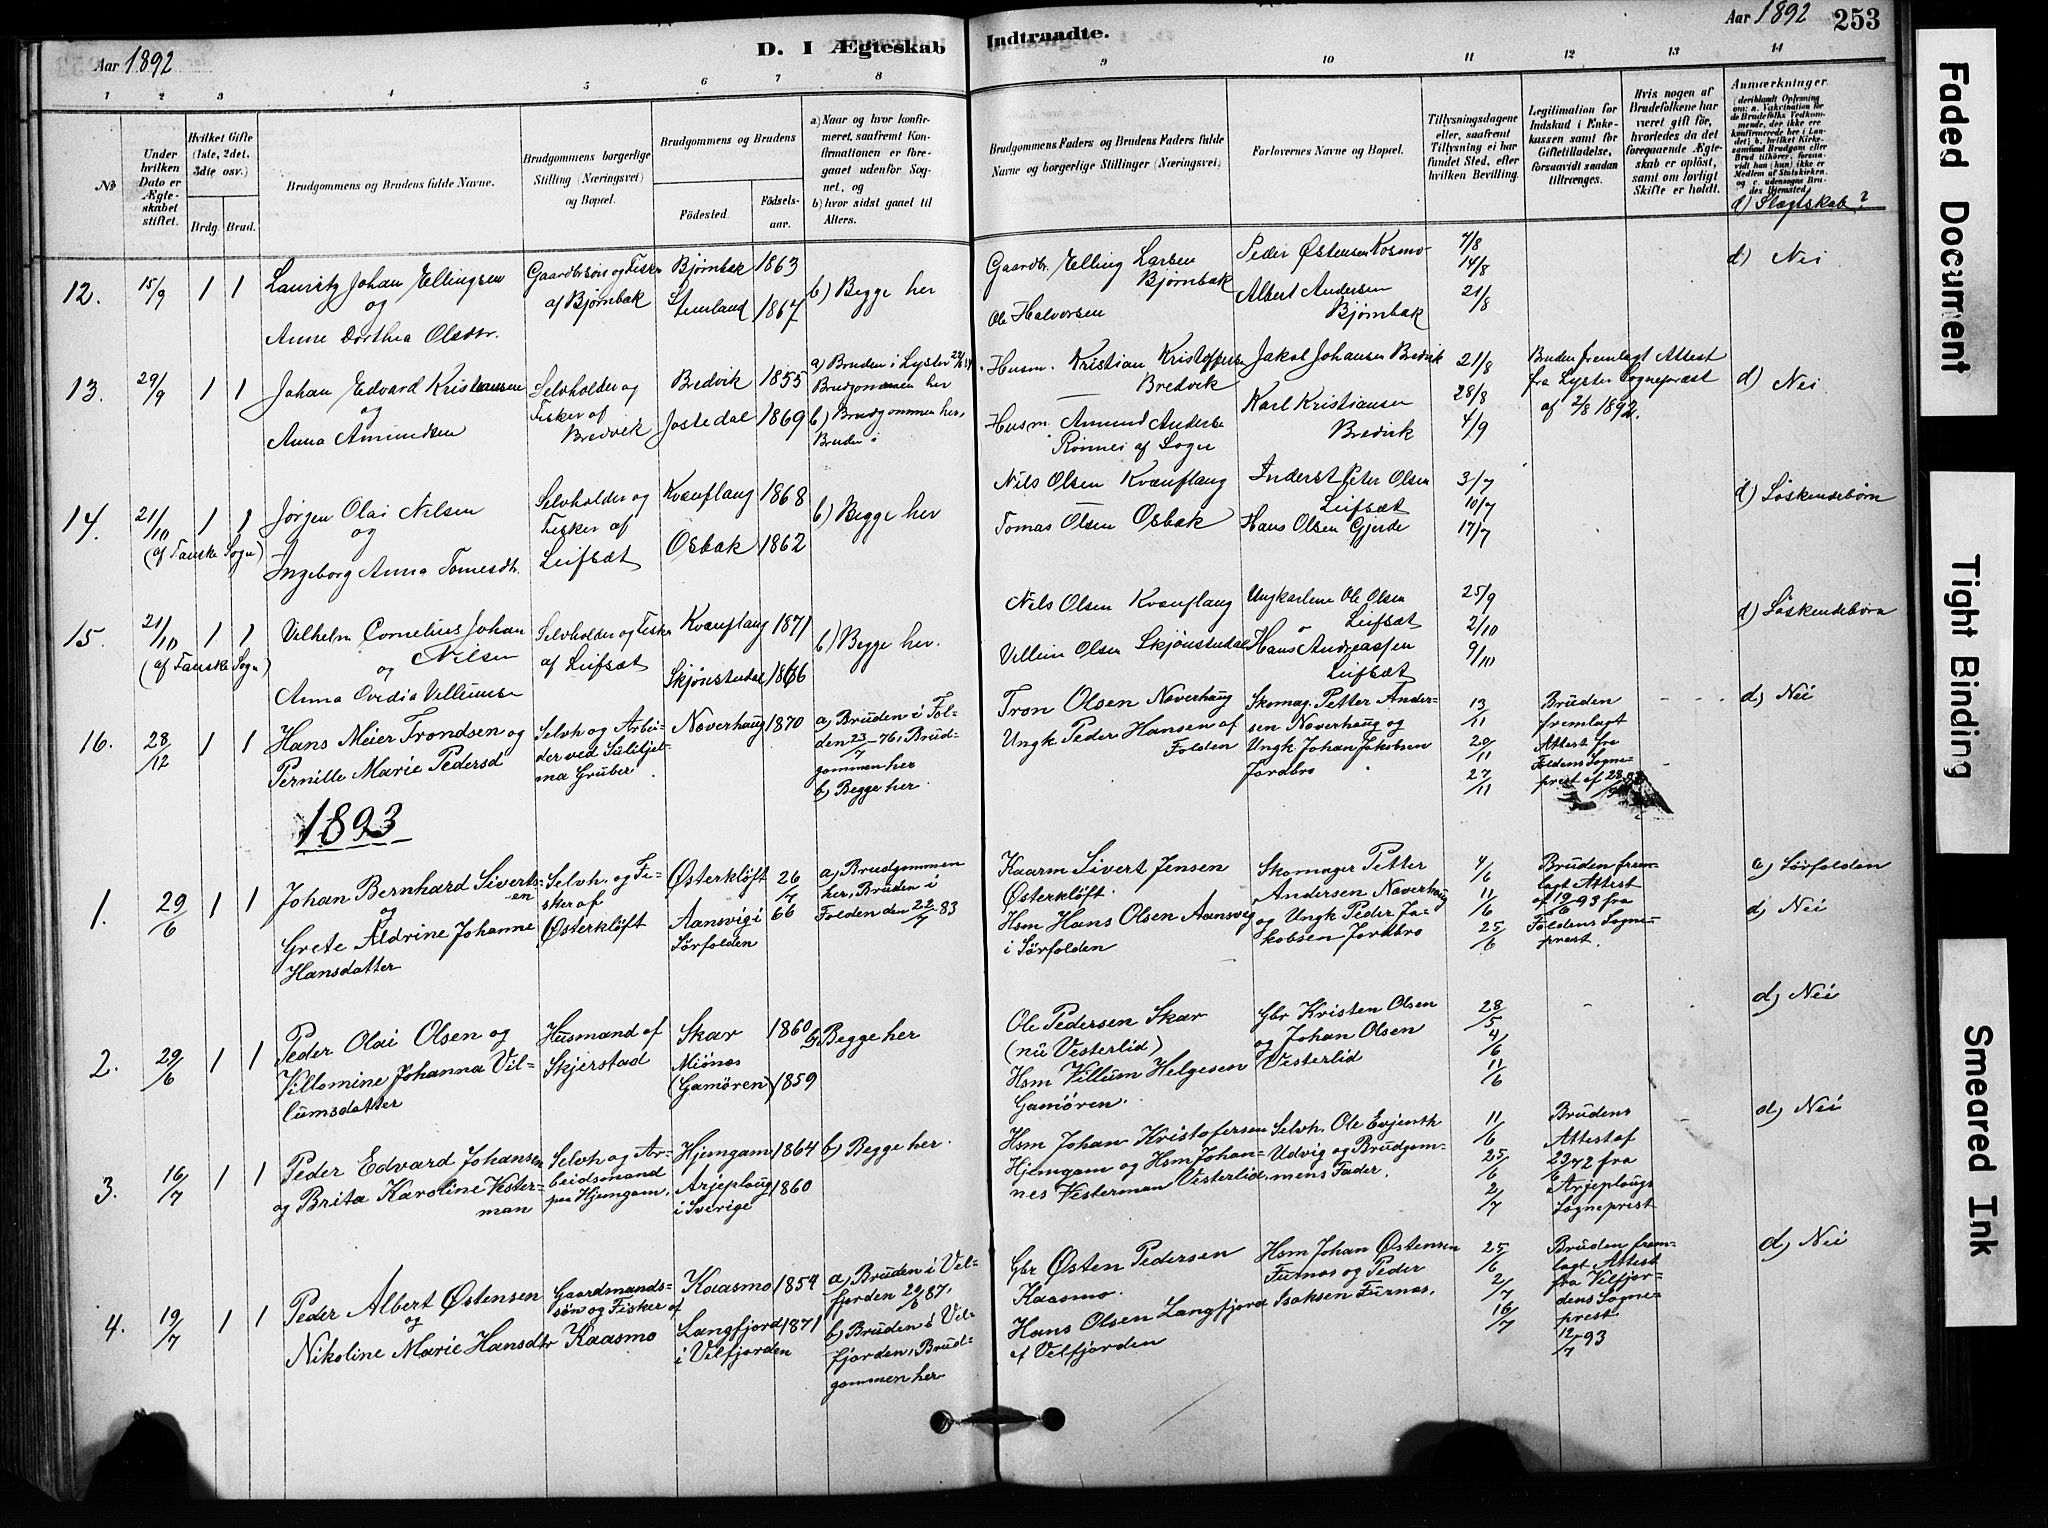 Aar 1892
D. I Ægteskab Indtraadte.
Aar 1892 253
1 2 3 4 5 6 7 8 9 10 11 12 13 14
No
Under hvilken Dato er Ægteskabet stiftet.
Hvilket Gifte (1ste, 2det, 3dte osv.)
Brdg. Brud.
Brudgommens og Brudens fulde Navne.
Brudgommens borgerlige Stilling (Næringsvei) og Bopæl.
Brudgommens og Brudens
Fødested. Fødselsaar.
a) Naar og hvor konfirmeret, saafremt Konfirmationen er foregaaet udenfor Sognet, og
b) hvor sidst gaaet til Alters.
Brudgommens Faders og Brudens Faders fulde Navne og borgerlige Stillinger (Næringsvei)
Forlovernes Navne og Bopæl.
Tillysningsdagene eller, saafremt Tillysning ei har fundet Sted, efter hvilken Bevilling.
Legitimation for Indskud i Enkekassen samt for Giftetilladelse, forsaavidt saadan tiltrænges.
Hvis nogen af Brudefolkene har været gift før, hvorledes da det foregaaende Ægteskab er opløst, samt om lovligt Skifte er holdt.
Anmærkninger
(deriblandt Oplysning om: a. Vakcination for de Brudefolks Vedkommende, der ikke ere konfirmerede her i Landet; b. hvilket Kirkesamfund Brudgom eller Brud tilhører, forsaavidt han (hun) ikke er Medlem af Statskirken, og c. udensogns Brudes Hjemsted.
d) Slægtskab?
12. 15/9 1 1
Lauritz Johan Ellingsen
og
Anne Dorthea Olsdtr.
Gaardbrsøn og Fisker
af Bjørnbak
Bjørnbak 1863
1867
b) Begge her
Gaardbr. Elling Larsen
Bjørnbak
Ole Halvorsen
Peder Østensen Kosmo
Albert Andersen
Bjørnbak
7/8
14/8
21/8
d) Nei
13. 29/9 1 1
Johan Edvard Kristiansen
og
Anna Amundsen
Selvholder og
Fisker af
Bredvik
Bredvik 1855
Jostedal 1869
a) Bruden i Lyster
Brudgommen her
b) Brudgommen her,
Bruden i
Husm. Kristian Kristoffersen
Bredvik
Husm. Amund Anderse
Rønnei af Sogn
Jakob Johansen Bredvik
Karl Kristiansen
Bredvik
21/8
28/8
4/9
Bruden fremlagt Attest
fra Lyster Sognepræst
af 2/8 1892.
d) Nei
14. 21/10 1 1
(af Fauske Sogn)
Jørgen Olai Nilsen
og
Ingeborg Anna Tomesdtr.
Selvholder og
Fisker af
Leifsæt
Kvænflaug 1868
Osbak 1862
b) Begge her
Nils Olsen Kvænflaug
Tomas Olsen Osbak
Anderst Peter Olsen
Leifsæt
Hans Olsen Gjerde
3/7
10/7
17/7
d) Søskendebørn
15. 21/10 1 1
(af Fauske Sogn)
Vilhelm Cornelius Johan
og Nilsen
Anna Ovedia Villumse
Selvholder og Fisker
af Leifsæt
Kvænflaug 1871
Skjønstudal 1866
b) Begge her.
Nils Olsen Kvænflaug
Villum Olsen Skjønstudal
Ungkarlene Ole Olsen
Leifsæt
Hans Andreassen
Leifsæt
25/9
2/10
9/10
d) Søskendebørn
16. 28/12 1 1
Hans Meier Trondsen og
Pernille Marie Pedersd
Selvh og Arbei-
der ved Sulitjel-
ma Gruber.
Noverhaug 1870
a) Bruden i Fol-
den 23/7 - 76, Brud-
gommen her
b) Begge her
Tron Olsen Noverhaug
Ungk Peder Hansen af
Folden
Skomag. Petter Ander-
sen Noverhaug og
Ungk Johan Jakobsen
Jordbro
13/11
20/11
27/11
Bruden
fremlagt
Attest fra
Foldens Sogne-
prest af
d) Nei
1893
1. 29/6 1 1
Johan Bernhard Siverts-
en
og
Grete Aldrine Johanne
Hansdatter
Selvh. og Fi-
sker af
Østerkløft
Østerkløft 26/7
Aansvig i 66
Sørfolden
a) Brudgommen
her, Bruden i
Folden den 22/7 83
Kaarm Sivert Jensen
Østerkløft.
Hsm Hans Olsen Aansvig
i Sørfolden
Skomager Petter
Andersen Noverhaug
og Ungk Peder Ja-
kobsen Jordbro
4/6
11/6
25/6
Bruden frem-
lagt Attest
af 19/6 93 fra
Foldens Sogne-
prest.
c) Sørfolden
d) Nei
2. 29/6 1 1
Peder Olai Olsen og
Villomine Johanna Vil-
lumsdatter
Husmand af
Skjerstad
Skar 1860
Miönes
(Gamören) 1859
b) Begge her
Ole Pedersen Skar
(nu Vesterlid)
Hsm Villum Helgesen
Gamören.
Gbr Kristen Olsen
og Johan Olsen
Vesterlid
28/5
4/6
11/6
d) Nei
3. 16/7 1 1
Peder Edvard Johansen
og Brita Karoline Vester-
man
Selvh og Ar-
beidsmand
paa Hjemgam.
Hjemgam 1864
Arjeploug 1860
i Sverige
b) Begge her.
Hsm Johan Kristofersen
Hjemgam og Hsm Johan-
nes Vesterman Vesterlid.
Selvh. Ole Evjenth
Udvig og Brudgom-
mens Fader.
11/6
25/6
2/7
Brudens
Attest af
fra
Arjeplougs
Sogneprest
d) Nei
4. 19/7 1 1
Peder Albert Østensen
og
Nikoline Marie Hansdtr
Gaardmands-
søn og Fisker af
Kaasmo
Kaasmo 1854
Langfjord 1871
i Velfjorden
a) Bruden i Vel-
fjorden 29/6 87.
b) Bruden i Vel-
fjorden, Brud-
gommen her
Gbr Østen Pedersen
Kaasmo.
Hans Olsen Langfjord
af Velfjorden
Hsm Johan Østensen
Furnes og Peder
Isaksen Furnes.
25/6
2/7
16/7
Bruden frem-
lagt Attest
fra Velfjor-
dens Sogne-
prest
12/7 93
d) Nei
Faded Document
Tight Binding
Smeared Ink